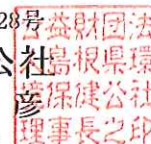 28号
公社
彦
益財団法
島根県環
境保健公社
理事長之印